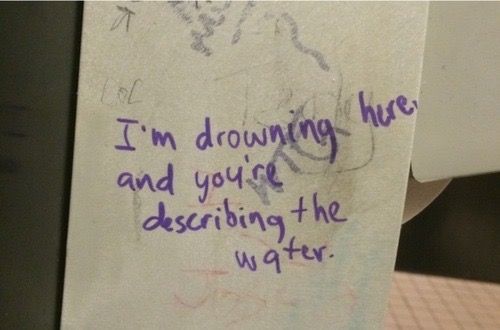 LOL
I'm drowning here,
and you're
describing the
water.